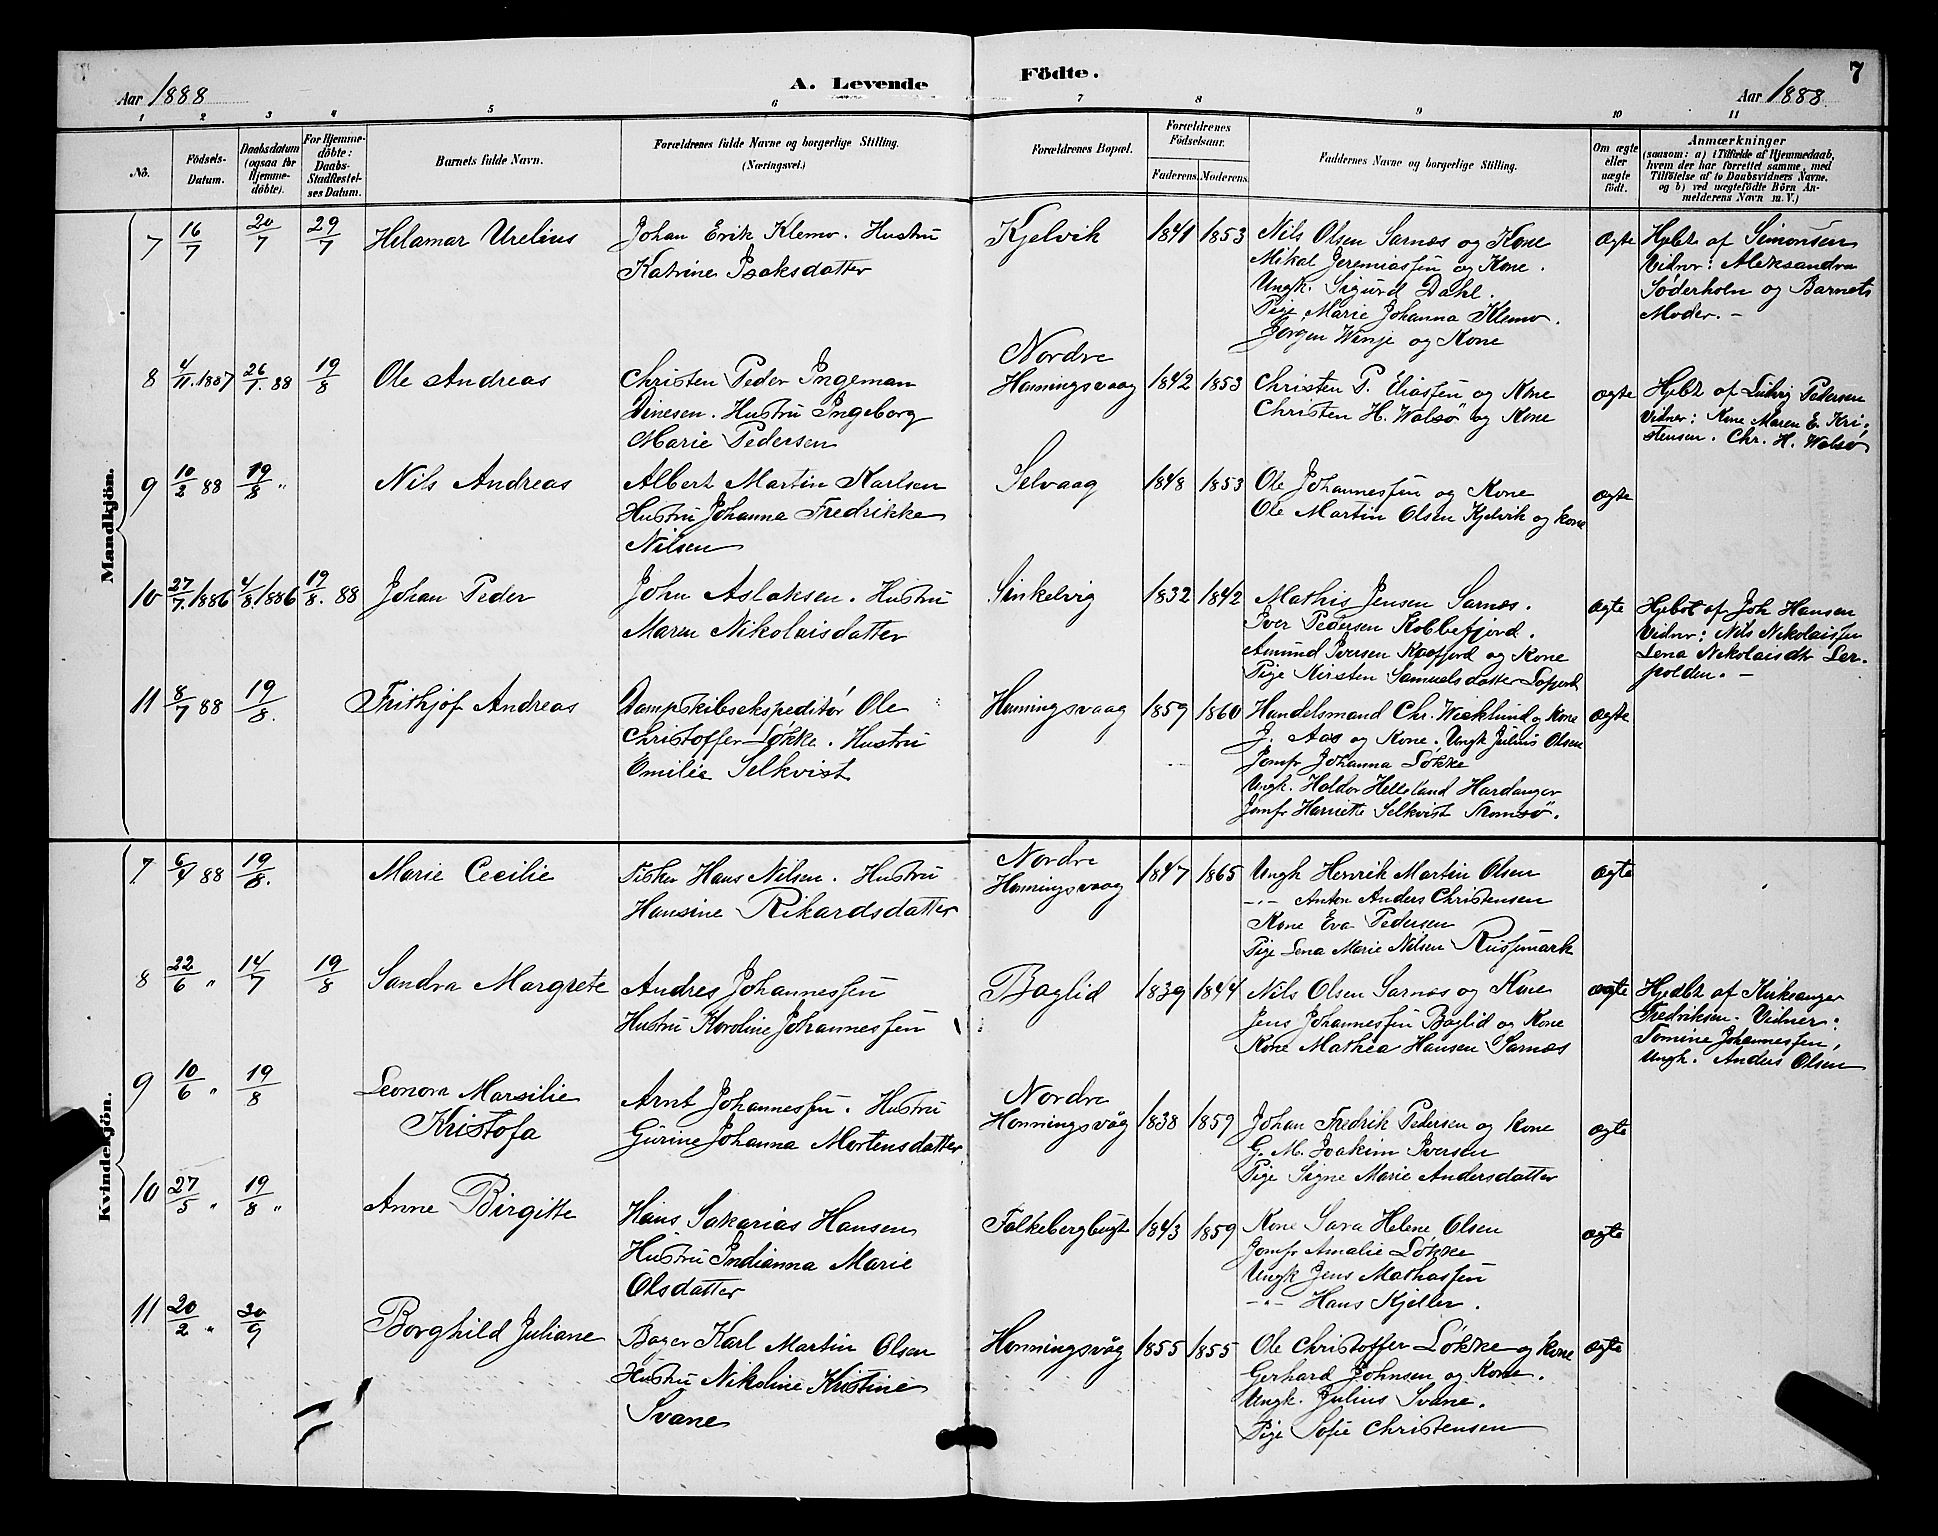 7
A. Levende Födte.
Aar 1888
Aar 1888
1 2 3 4 5 6 7 8 9 10 11
No.
Födsels-Datum.
Daabsdatum (ogsaa for Hjemme-döbte).
For Hjemme-döbte: Daabs-Stadfæstel-ses Datum.
Barnets fulde Navn.
Forældrenes fulde Navne og borgerlige Stilling.
(Næringsvei.)
Forældrenes Bopæl.
Forældrenes Födselsaar.
Faderens. Moderens.
Faddernes Navne og borgerlige Stilling.
Om ægte eller uægte födt.
Anmærkninger
(saasom: a) i Tilfælde af Hjemmedaab,
hvem der har forrettet samme, med
Tilföielse af to Daabsvidners Navne,
og b) ved uægtefödte Börn An-
melderens Navn m. V.)
Mandkjön.
7 16/7 20/7 29/7 Helamar Urelius
Johan Erik Klemo. Hustru
Katrine Isaksdatter
Kjelvik 1841 1853
Nils Olsen Sarnæs og Kone
Mikal Jeremiassen og Kone.
Ungk. Sigurd Dahl.
Pige Marie Johanna Klemo.
Jørgen Winje og Kone
ægte
Hjdbt af Simonsen
Vidner: Aleksandra
Söderholm og Barnets
Moder. –
8 4/11.1887 26/1.88 19/8 Ole Andreas
Christen Peder Ingeman
Dinesen. Hustru Ingeborg
Marie Pedersen
Nordre
Honningsvaag 1842 1853
Christen P. Eliassen og Kone
Christen H. Walsö og Kone
ægte
Hjdbt af Ludvig Pedersen
Vidner: Kone Maren E. Kri-
stensen. Chr. H. Walsø
9 10/2 88 19/8 " Nils Andreas
Albert Martin Karlsen
Hustru Johanna Fredrikke
Nilsen
Selvaag 1848 1853
Ole Johannessen og Kone
Ole Martin Olsen Kjelvik og Kone
ægte
10 27/7.1886 4/8 1886 19/8.88 Johan Peder
John Aslaksen. Hustru
Maren Nikolaisdatter
Sinkelvig 1832 1842
Mathis Jensen Sarnæs.
Iver Pedersen Kobbefjord.
Amund Iversen Kaafjord og Kone
Pige Kirsten Samuelsdatter
ægte
Hjdbt af Joh Hansen
Vidner: Nils Nikolaissen
Lena Nikolaisdtr Ler-
polden. –
11 8/7 88 19/8. Frithjof Andreas
Dampskibsekspeditør Ole
Christoffer Løkke. Hustru
Emilie Selkvist
Honningsvaag 1859 1860
Handelsmand Chr. Wecklund og Kone
J. Aas og Kone. Ungk Julius Olsen
Jomfr Johanna Løkke
Ungk. Haldor Helleland Hardanger
Jomfr Harriette Selkvist Tromsö.
ægte
Kvindekjön.
7 6/4 88 19/8. Marie Cecilie
Fisker Hans Nilsen. Hustru
Hansine Rikardsdatter
Nordre
Honningsvaag 1847 1865
Ungk Henrik Martin Olsen
–"– Anton Anders Christensen
Kone Eva Pedersen
Pige Lena Marie Nilsen Russemark
ægte
8 22/6 " 14/7 19/8 Sandra Margrete
Andres Johannessen
Hustru Karoline Johannessen
Baglid 1839 1844
Nils Olsen Sarnæs og Kone
Jens Johannessen Baglid og Kone
Kone Mathea Hansen Sarnæs
ægte
Hjedbt af Kirksanger
Fredriksen. Vidner:
Tomine Johannessen,
Ungk. Anders Olsen
9 10/6 " 19/8 Leonora Marsilie
Kristofa
Arnt Johannessen. Hustru
Gurine Johanna Mortensdatter
Nordre
Honningsvåg 1838 1859
Johan Fredrik Pedersen og Kone
G. M. Joakim Iversen
Pige Signe Marie Andersdatter
ægte
10 27/5 " 19/8 " Anne Birgitte
Hans Sakarias Hansen
Hustru Indianna Marie
Olsdatter
Falkebergbugt 1843 1859
Kone Sara Helene Olsen
Jomfr Amalie Løkke
Ungk Jens Mathassen
–"– Hans Kjeller.
ægte
11 20/2 " 30/9 Borghild Juliane
Bager Karl Martin Olsen
Hustru Nikoline Kristine
Svane
Honningsvåg 1855 1855
Ole Christoffer Løkke og Kone
Gerhard Johnsen og Kone.
Ungk. Julius Svane.
Pige Sofie Christensen
ægte